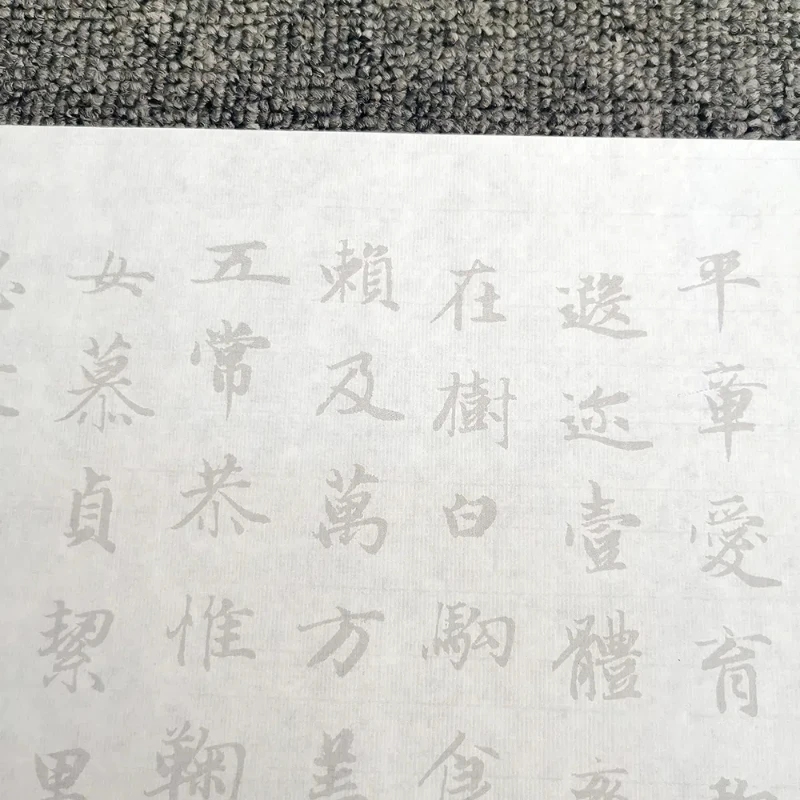 平章愛育
遐迩壹體
在樹白駒食
賴及萬方
五常恭惟鞠
女慕貞絜